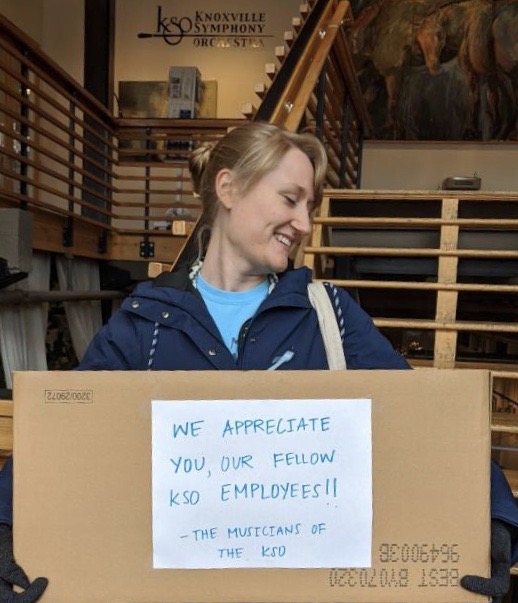 kso KNOXVILLE
SYMPHONY
ORCHESTRA
3200/29072
WE APPRECIATE
YOU, OUR FELLOW
KSO EMPLOYEES!!
- THE MUSICIANS OF
THE KSO
9649003B
BEST BY070320